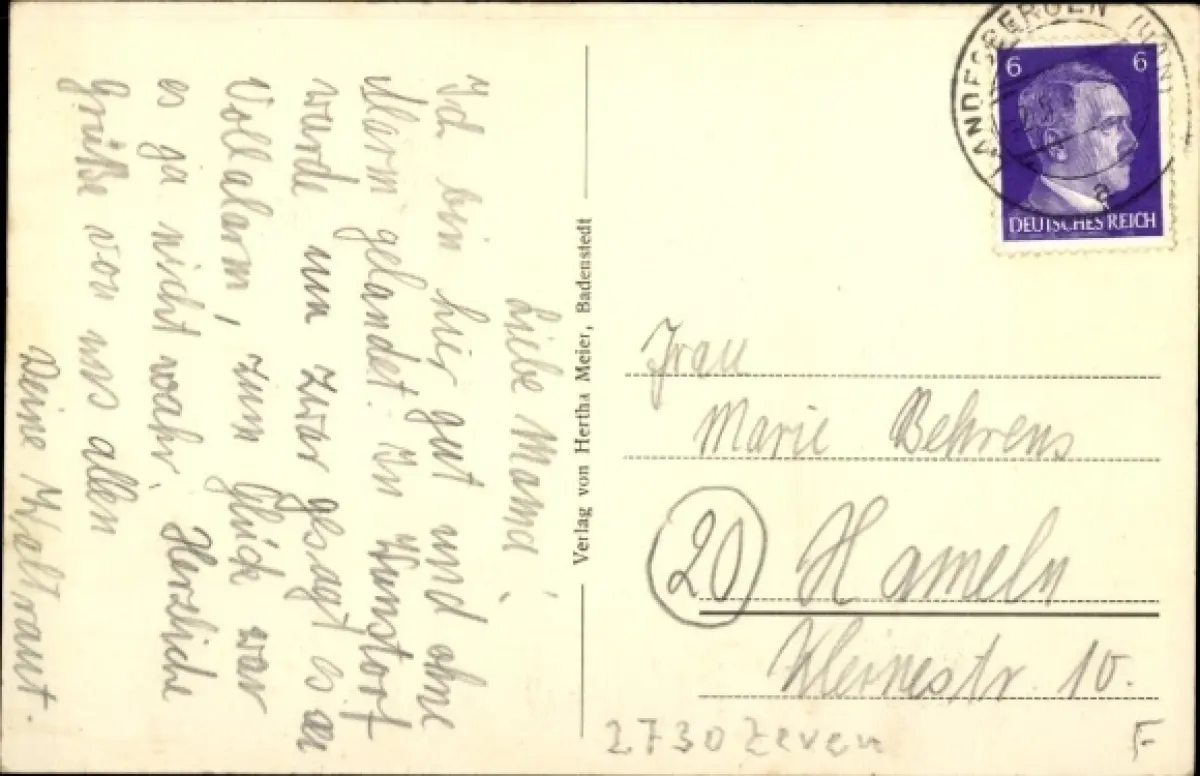 Liebe Mama,
Ich bin hier gut und ohne
Alarm gelandet. In Wunstorf
wurde nun zwar gesagt es war
Vollalarm, zum Glück war
es ja nicht wahr. Herzliche
Grüße von uns allen
Deine Waltraut.
Verlag von Hertha Meier, Badenstedt
LANDESBERGEN
a
6 6
DEUTSCHES REICH
Frau
Marie Behrens
20 Hameln
10.
2730 Zeven
F